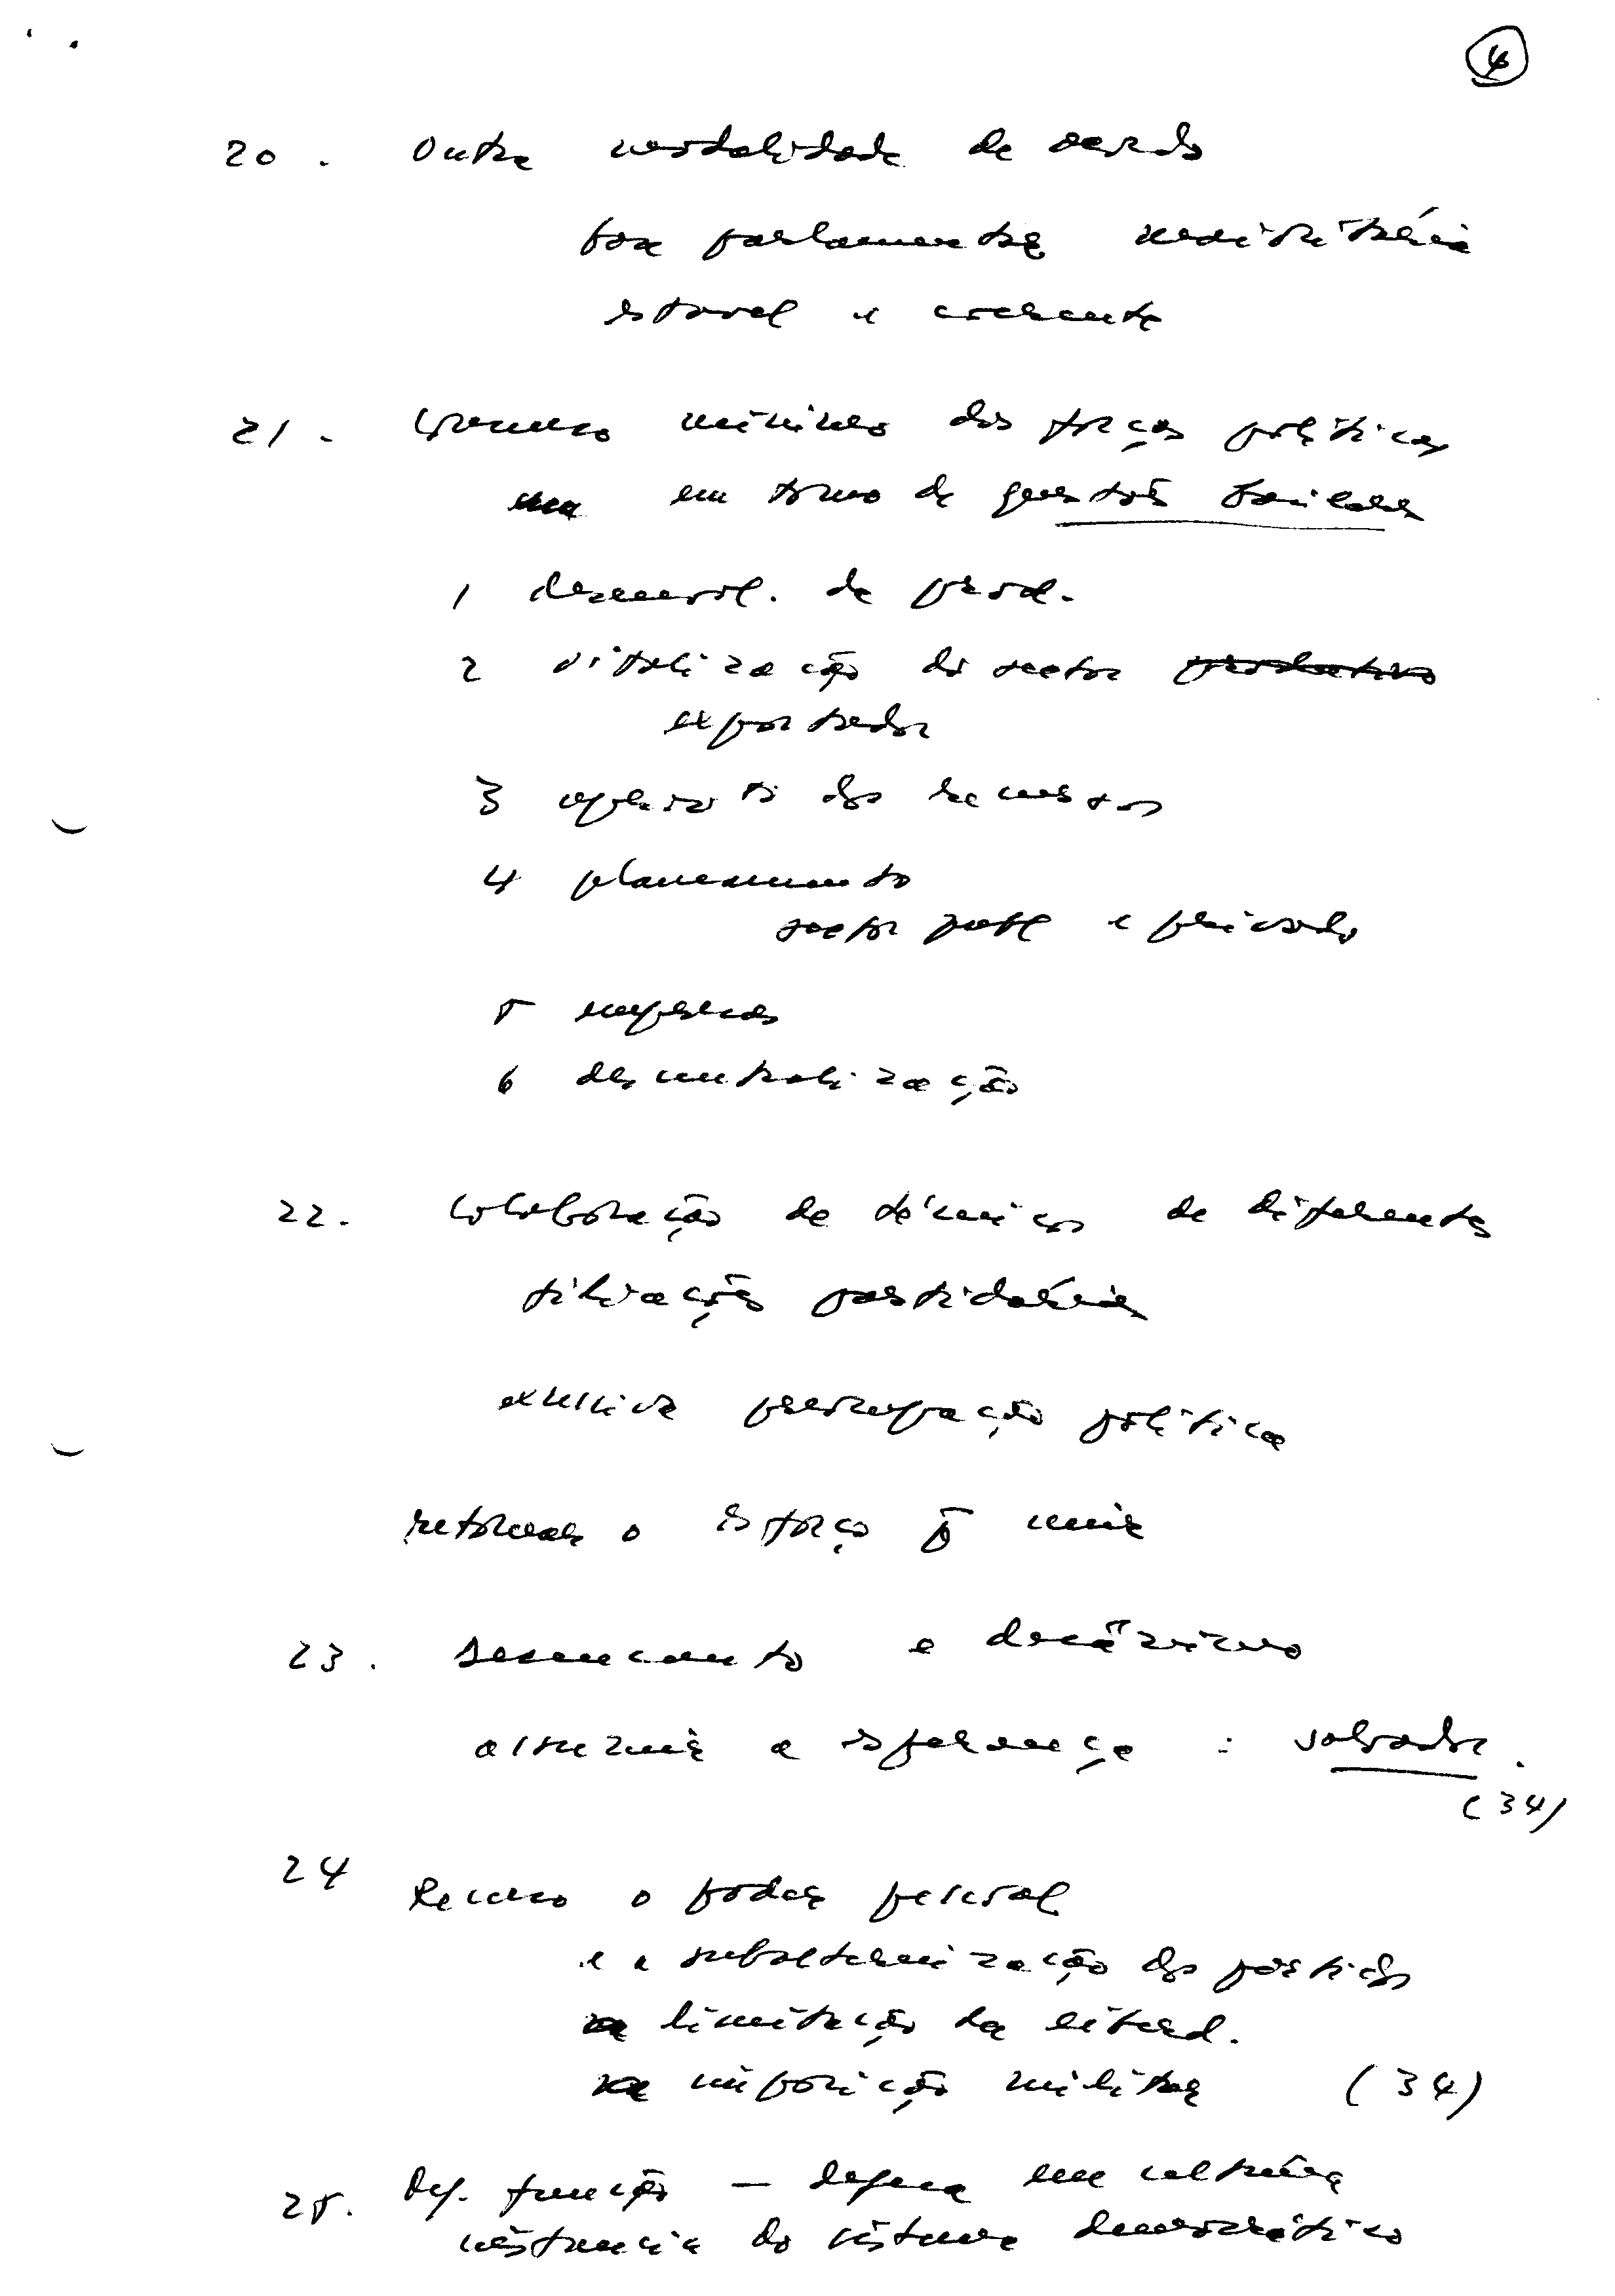 4
20. Outra modalidade de acordo
base parlamentar maioritária
estavel e coerente
21. Consenso minimo das forças políticas
em torno de questões basilares
1 desenvol. da prod.
2 vitalização do sector produtivo
exportador
3 aproveit. dos recursos
4 planeamento
sector publ e privado
5 empresas
6 descentralização
22. Colaboração de técnicos de diferentes
filiações partidárias
excessiva preocupação política
retomar o esforço
23. Desencanto e
a esperança : salvador.
(34)
24 Recurso o poder pessoal
e a subalternização dos partidos
limitação da liberd.
imposição militar (34)
25. função — defesa em
instancia do sistema democrático